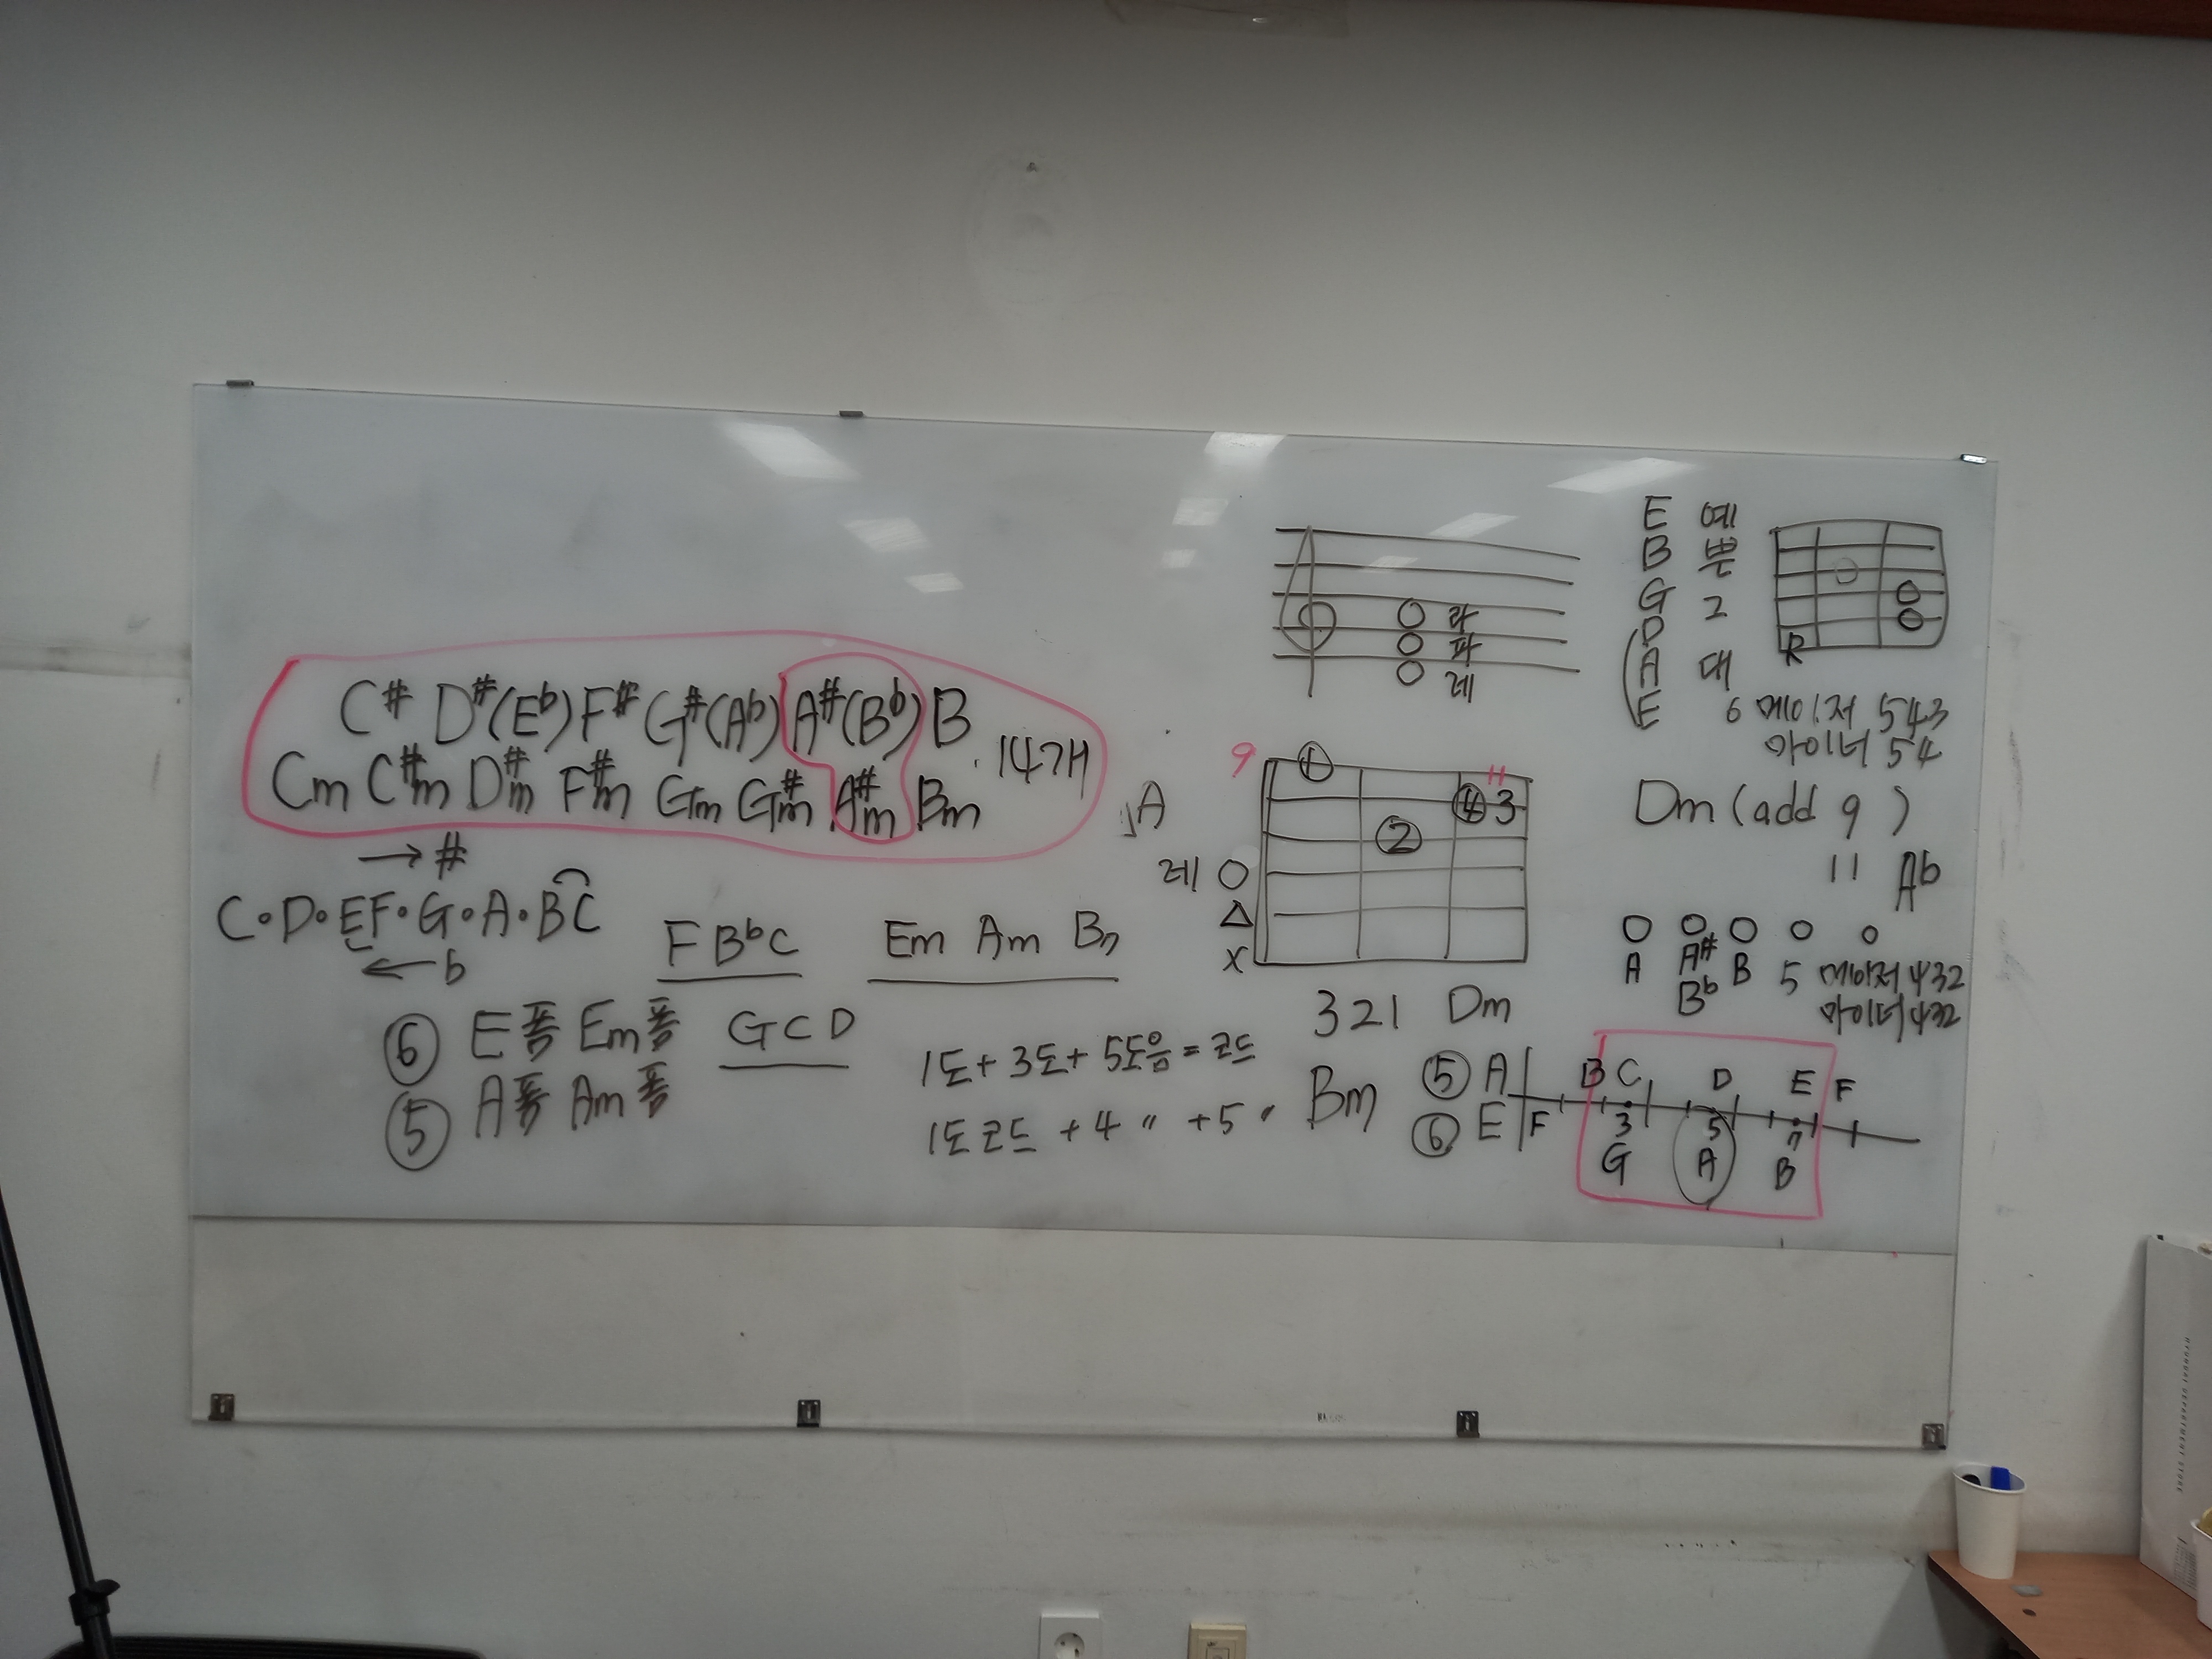 C# D#(Eb) F# G#(Ab) A#(Bb) B
Cm C#m D#m F#m Gm G#m A#m Bm
14개
→ #
C•D•EF•G•A•BC
← b
F Bb C
Em Am B7
⑥ E폼 Em폼
G C D
⑤ A폼 Am폼
1도+3도+5도음=코드
1도코드 +4 〃 +5 〃
라
파
레
9
① 
11
④ 3
②
A
레 ○
△
X
3 2 1 Dm
Bm
E 예
B 쁜
G 그
D
A 대
E
R
6 메이저 543
마이너 54
Dm (add 9)
11 Ab
○ ○ ○ ○ ○
A A# B 5 메이저 432
Bb 마이너 432
⑤ A B C D E F
⑥ E F 3 5 7
G A B